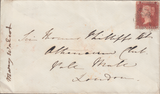 Sir Thomas Phillipps Bt
Athenaeum Club
Pall Mall
London